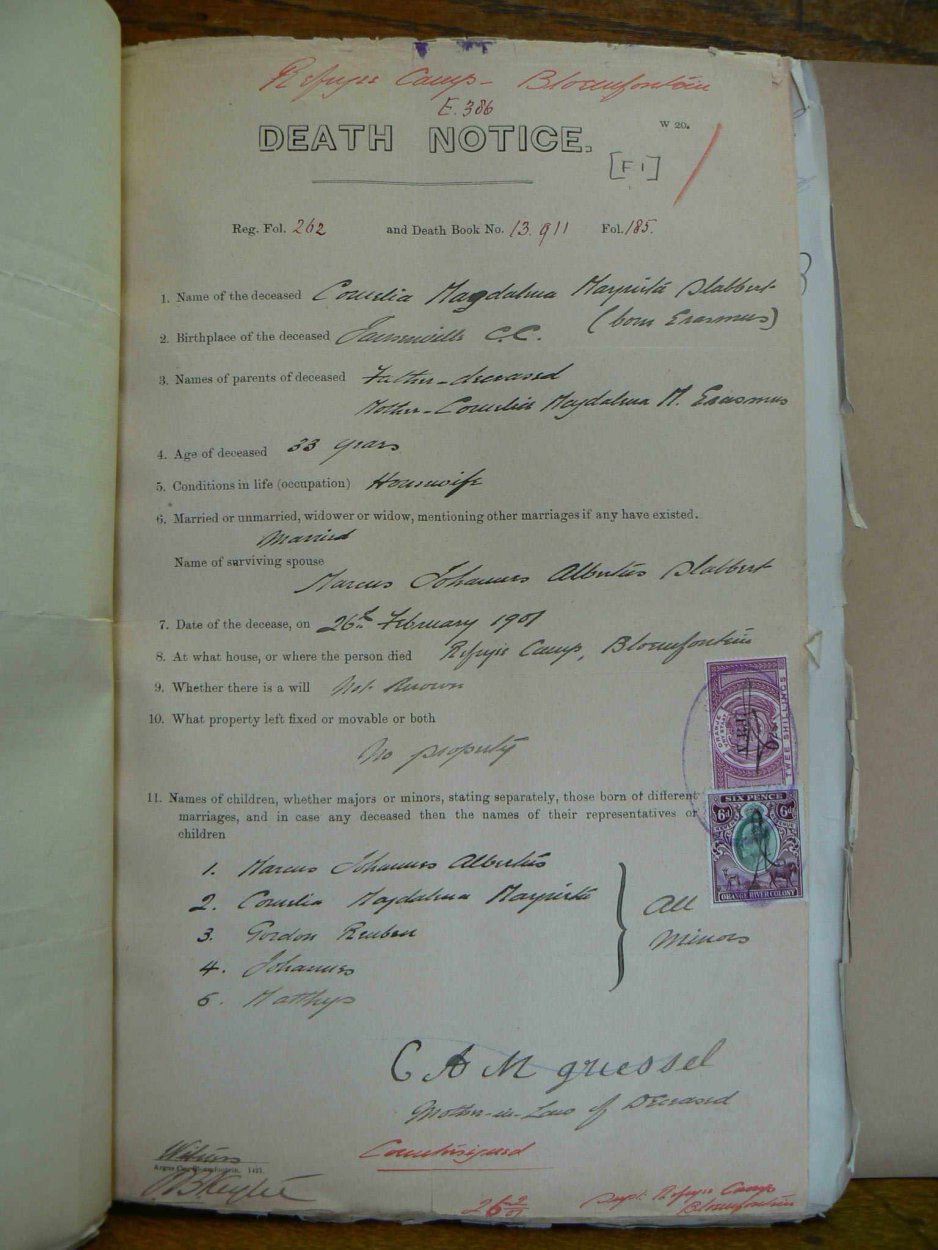 Refugee Camp - Bloemfontein
E. 386
W 20.
DEATH NOTICE.
[F 1]
Reg. Fol. 262 and Death Book No. 13.911 Fol. 185.
1. Name of the deceased Cornelia Magdalena Magrieta Slabbert
(born Erasmus)
2. Birthplace of the deceased Jansenville C.C.
3. Names of parents of deceased Father - deceased
Mother - Cornelia Magdalena M. Erasmus
4. Age of deceased 33 years
5. Conditions in life (occupation) Housewife
6. Married or unmarried, widower or widow, mentioning other marriages if any have existed.
Married
Name of surviving spouse
Marcus Johannes Albertus Slabbert
7. Date of the decease, on 26th February 1901
8. At what house, or where the person died Refugee Camp, Bloemfontein
9. Whether there is a will Not Known
10. What property left fixed or movable or both
No property
TWEE SHILLINGS
V.R.I.
11. Names of children, whether majors or minors, stating separately, those born of different
marriages, and in case any deceased then the names of their representatives or
children
SIX PENCE
6d 6d
ORANGE RIVER COLONY
1. Marcus Johannes Albertus
2. Cornelia Magdalena Magrieta
3. Gordon Reuben
4. Johannes
5. Matthys
All
Minors
C A M griessel
Mother-in-Law of Deceased
Countersigned
Witness
Argus Co., Bloemfontein, 1421.
26/2/01
Supt. Refugee Camp
Bloemfontein